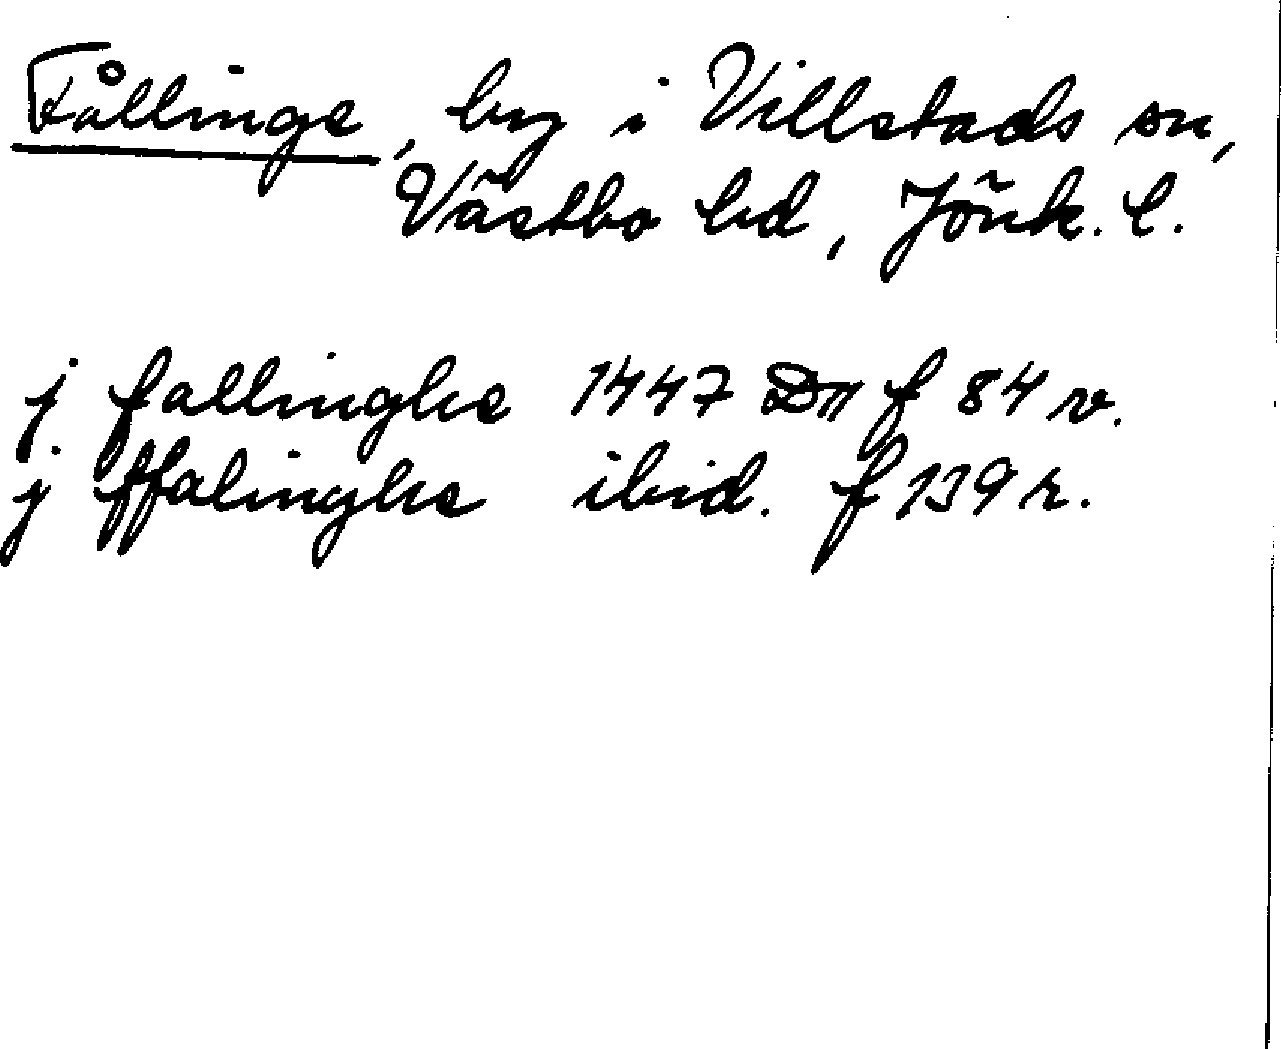 Fållinge, by i Villstads sn,
Västbo hd, Jönk. l.
j fallinghe 1447 D11 f 84 v.
j ffalinghe ibid. f 139 r.